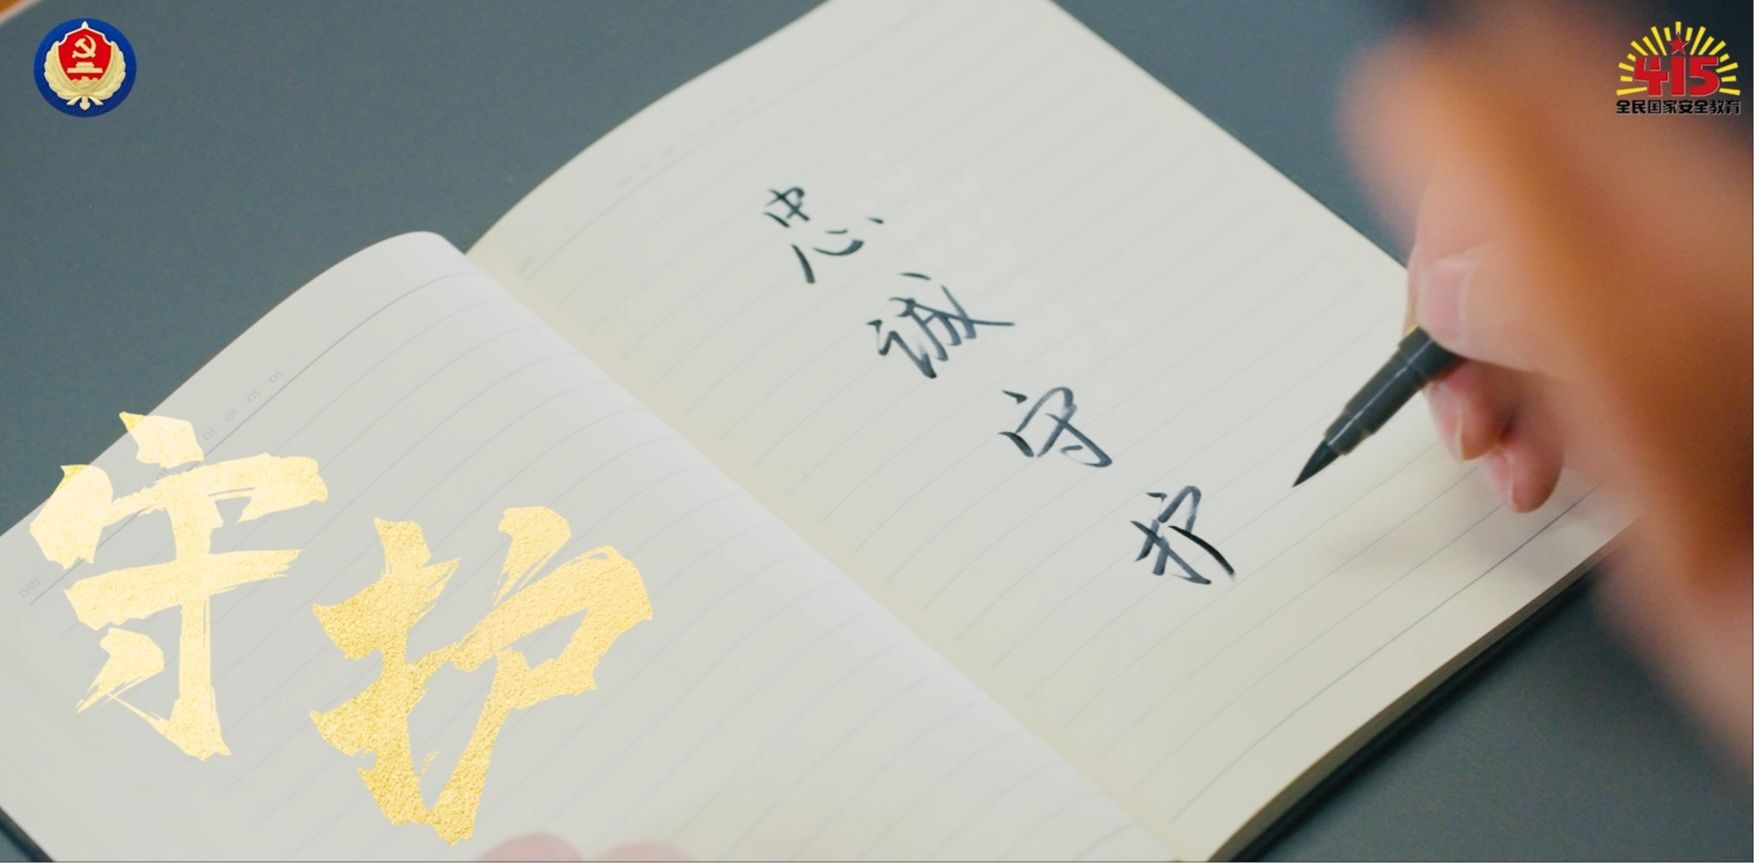 415
全民国家安全教育
忠诚守护
守护